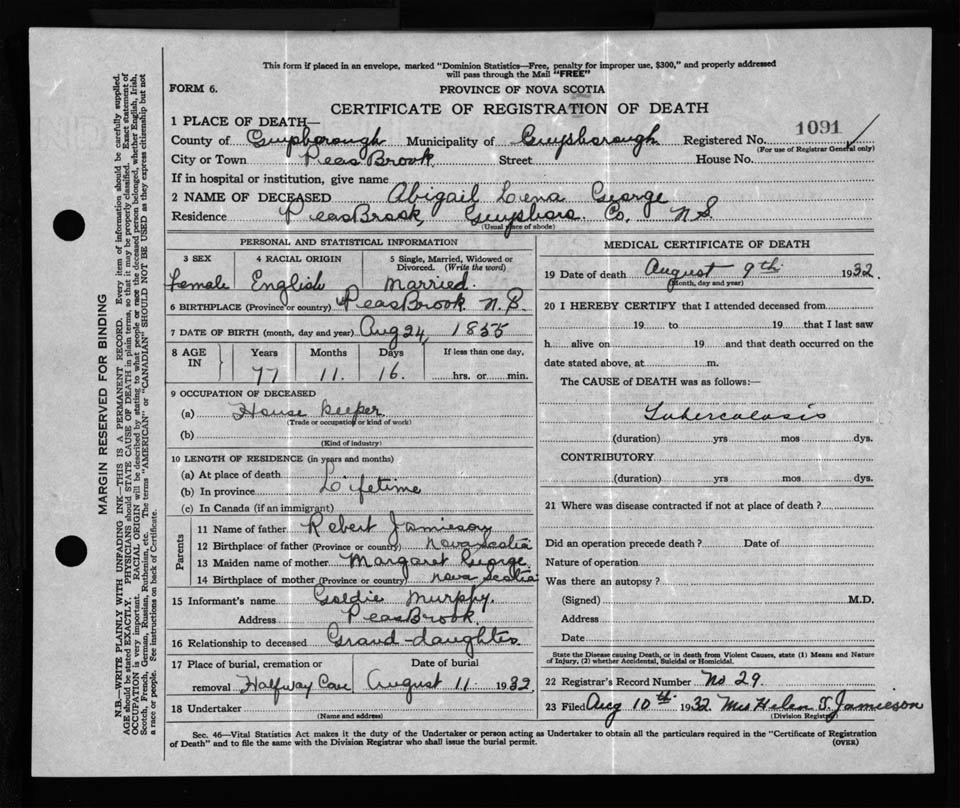 This form if placed in an envelope, marked "Dominion Statistics—Free, penalty for improper use, $300," and properly addressed
will pass through the Mail "FREE"
FORM 6.
PROVINCE OF NOVA SCOTIA
CERTIFICATE OF REGISTRATION OF DEATH
1 PLACE OF DEATH—
County of Guysborough Municipality of Guysborough Registered No. 1091
(For use of Registrar General only)
City or Town Peas Brook Street House No.
If in hospital or institution, give name
2 NAME OF DECEASED Abigail Lena George
Residence Peas Brook, Guysboro. Co. N S.
(Usual place of abode)
PERSONAL AND STATISTICAL INFORMATION
3 SEX 4 RACIAL ORIGIN 5 Single, Married, Widowed or
Divorced. (Write the word)
Female English Married.
6 BIRTHPLACE (Province or country) Peas Brook. N. S.
7 DATE OF BIRTH (month, day and year) Aug 24, 1855
8 AGE IN Years Months Days If less than one day,
77 11. 16. hrs. or min.
9 OCCUPATION OF DECEASED
(a) House keeper
(Trade or occupation or kind of work)
(b)
(Kind of industry)
10 LENGTH OF RESIDENCE (in years and months)
(a) At place of death
(b) In province Lifetime
(c) In Canada (if an immigrant)
Parents
11 Name of father Robert Jamieson
12 Birthplace of father (Province or country) Nova Scotia
13 Maiden name of mother Margaret George
14 Birthplace of mother (Province or country) Nova Scotia
15 Informant's name Goldie Murphy.
Address Peas Brook.
16 Relationship to deceased Grand-daughter
17 Place of burial, cremation or Date of burial
removal Halfway Cove August 11. 1932.
18 Undertaker
(Name and address)
MEDICAL CERTIFICATE OF DEATH
19 Date of death August 9th 1932.
(Month, day and year)
20 I HEREBY CERTIFY that I attended deceased from
19 to 19 that I last saw
h alive on 19 and that death occurred on the
date stated above, at m.
The CAUSE of DEATH was as follows:—
Tuberculosis
(duration) yrs mos dys.
CONTRIBUTORY
(duration) yrs mos dys.
21 Where was disease contracted if not at place of death?
Did an operation precede death? Date of
Nature of operation
Was there an autopsy?
(Signed) M.D.
Address
Date
State the Disease causing Death, or in death from Violent Causes, state (1) Means and Nature
of Injury, (2) whether Accidental, Suicidal or Homicidal.
22 Registrar's Record Number No 29
23 Filed Aug 10th 1932 Mrs Helen S. Jamieson
(Division Registrar)
Sec. 46—Vital Statistics Act makes it the duty of the Undertaker or person acting as Undertaker to obtain all the particulars required in the "Certificate of Registration
of Death" and to file the same with the Division Registrar who shall issue the burial permit.
(OVER)
MARGIN RESERVED FOR BINDING
N.B.—WRITE PLAINLY WITH UNFADING INK—THIS IS A PERMANENT RECORD. Every item of information should be carefully supplied.
AGE should be stated EXACTLY. PHYSICIANS should STATE CAUSE OF DEATH in plain terms, so that it may be properly classified. Exact statement of
OCCUPATION is very important. RACIAL ORIGIN will be described by stating to what people or race the deceased person belonged, whether English, Irish,
Scotch, French, German, Russian, Ruthenian, etc. The terms "AMERICAN" or "CANADIAN" SHOULD NOT BE USED as they express citizenship but not
a race or people. See instructions on back of Certificate.